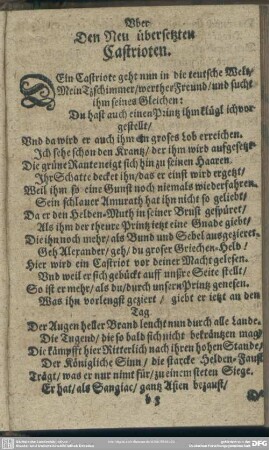 Vber
Den Neu übersetzten
Castrioten.
SEin Castriote geht nun in die teutsche Welt/
Mein Tzschimmer/werther Freund/und sucht
ihm seines Gleichen:
Du hast auch einen Printz ihm klügl ich vor-
gestellt/
Vnd da wird er auch ihm ein groses Lob erreichen.
Ich sehe schon den Krantz/der ihm wird auffgesetzt
Die grüne Raute neigt sich hin zu seinen Haaren.
Ihr Schatte decket ihn/das er einst wird ergetzt/
Weil ihm so eine Gunst noch niemals wiederfahren.
Sein schlauer Amurath hat ihn nicht so geliebt/
Da er den Helden-Muth in seiner Brust gespüret/
Als ihm der theure Printz ietzt eine Gnade giebt/
Die ihn noch mehr/als Bund und Sebel ausgezieret.
Geh Alexander/geh/du großer Griechen-Held/
Hier wird ein Castriot vor deiner Macht gelesen.
Vnd weil er sich gebückt auff unsre Seite stellt/
So ist er mehr/als du/durch unsern Printz genesen.
Was ihn vorlengst geziert/ giebt er ietzt an den
Tag.
Der Augen heller Brand leucht nun durch alle Lande.
Die Tugend/die so bald sich nicht bekräntzen mag
Die kämpfft hier Ritterlich nach ihren hohen Stande/
Der Königliche Sinn/ die starcke Helden-Faust
Trägt/was er nur nimt für/zu einem steten Siege.
Er hat/als Sangiac/ gantz Asien bezaust/
b 5